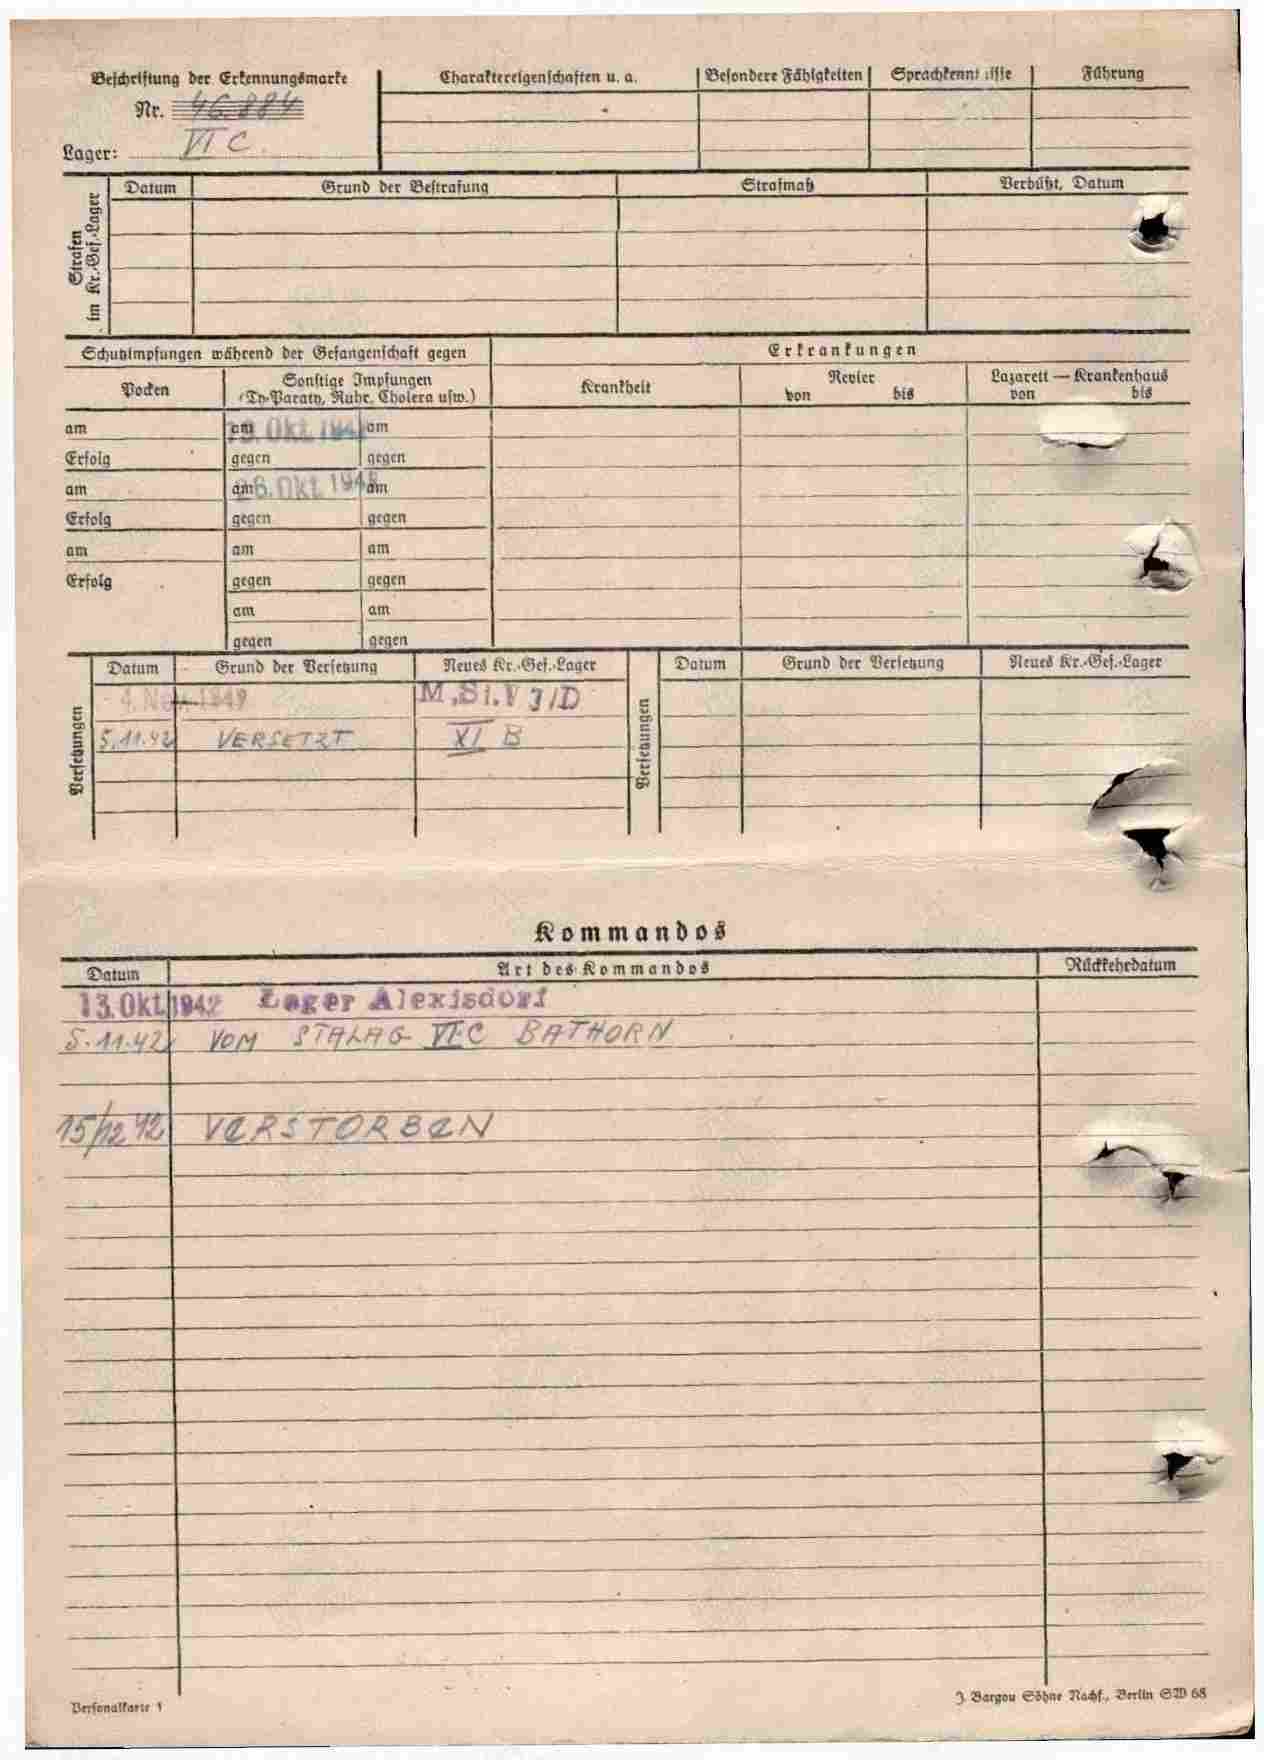 Beschriftung der Erkennungsmarke
Nr. 46.884
Lager: VI C.
Charaktereigenschaften u. a.
Besondere Fähigkeiten
Sprachkenntnisse
Führung
Strafen
im Kr.-Gef.-Lager
Datum
Grund der Bestrafung
Strafmaß
Verbüßt, Datum
Schutzimpfungen während der Gefangenschaft gegen
Erkrankungen
Pocken
Sonstige Impfungen
(Ty-Paraty, Ruhr, Cholera usw.)
Krankheit
Revier
von bis
Lazarett — Krankenhaus
von bis
am am 19. Okt. 194 am
Erfolg gegen gegen
am am 26. Okt. 194 am
Erfolg gegen gegen
am am am
Erfolg gegen gegen
am am
gegen gegen
Versetzungen
Datum Grund der Versetzung Neues Kr.-Gef.-Lager
4. Nov. 1942 M.St. VI/D
5.11.42 VERSETZT XI B
Versetzungen
Datum Grund der Versetzung Neues Kr.-Gef.-Lager
Kommandos
Datum Art des Kommandos Rückkehrdatum
13. Okt. 1942 Lager Alexisdorf
5.11.42 VOM STALAG VI C BATHORN
15/12 42 VERSTORBEN
Personalkarte 1
J. Bargou Söhne Nachf., Berlin SW 68